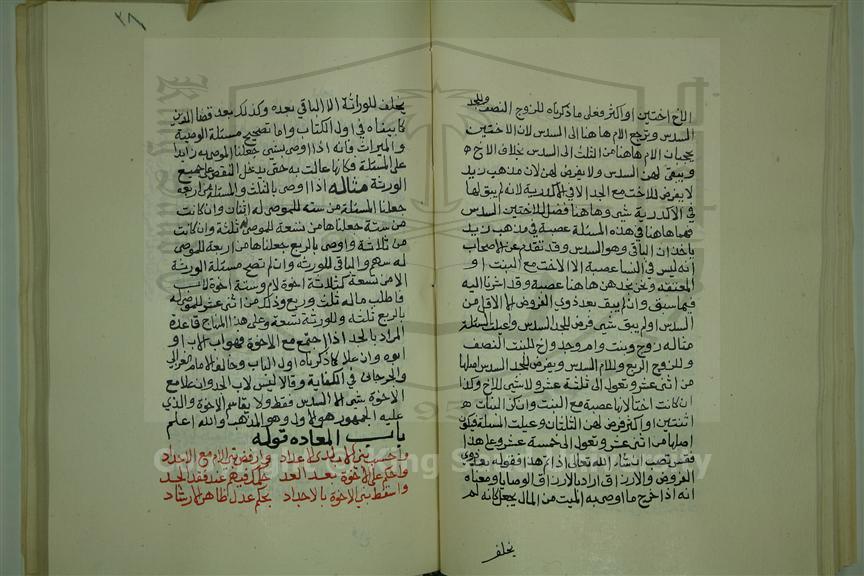 الاخ اختين او اكثر فعلى ما ذكرناه للزوج النصف وللجد
السدس وترجع الام هاهنا الى السدس لان الاختين
يحجبان الام هاهنا من الثلث الى السدس بخلاف الاخ
ويبقى لهن السدس ولا يفرض لهن لان مذهب زيد
لا يفرض للاخت مع الجد الا في الاكدرية لانه لم يبق لها
في الاكدرية شي وهاهنا فضل للاختين السدس
فهما هاهنا في هذه المسئلة عصبة في مذهب زيد
ياخذان الباقي وهو السدس وقد تقدم عن الاصحاب
انه ليس في النسا عصبة الا الاخت مع البنت او
المعتقه ونحن نجد هن هاهنا عصبة وقد اشرنا اليه
فيما سبق وان لم يبق بعد ذوي الفروض الا الاقل من
السدس او لم يبق شي فرض للجد السدس وعيلت المسئلة
مثاله زوج وبنت وام وجد واخ للبنت النصف
وللزوج الربع وللام السدس ويفرض للجد السدس اصلها
من اثنى عشر وتعول الى ثلثة عشر ولا شي للاخ وكذا
ان كانت اختا لانها عصبة مع البنت وان كن البنات
اثنتين او اكثر فرض لهن الثلثان وعيلت المسئلة فيكون
اصلها من اثنى عشر وتعول الى خمسة عشر وعلى هذا
فقس تصب انشاء الله تعالى اذا تقرر هذا فقوله بعد ذوي
الفروض والارزاق اراد بالارزاق الوصايا ومعناه
انه اذا خرج ما اوصى به الميت من المال يجعل كانه لم
يخلف
٢٨
يخلف للورثة الا الباقي بعده وكذلك بعد قضا الدين
كما بيناه في اول الكتاب واما تصحيح مسئلة الوصية
والميراث فانه اذا اوصى بشي جعلنا الموصى به زايدا
على المسئلة وكانها عالت به حتى يدخل النقص على جميع
الورثة مثاله اذا اوصى بالثلث والمسئلة من اربعة
جعلنا المسئلة من سته للموصى له اثنان وان كانت
من ستة جعلناها من تسعة للموصى له ثلثة وان كانت
من ثلاثة واوصى بالربع جعلناها من اربعة للموصى
له سهم والباقي للورثه وان لم تصح مسئلة الورثة
الا من تسعة كثلاثة اخوة لام وستة اخوة لاب
فاطلب ماله ثلث وربع وذلك من اثنى عشر للموصى له
بالربع ثلثه وللورثة تسعة وعلى هذا المنهاج قاعدة
المراد بالجد اذا اجتمع مع الاخوة فهو اب الاب او
ابوه وان علا كما ذكرناه اول الباب وخالف الامام الغزالي
والجرجاني في الكفاية وقالا ليس لاب الجد وان علا مع
الاخوة شي الا السدس فقط ولا يقاسم الاخوة والذي
عليه الجمهور هو الاول وهو المذهب والله اعلم
باب المعاده قوله
واحسب بني الاب لدى الاعداد وارفض بني الام مع الاجداد
واحكم على الاخوة بعد العد حكمك فيهم عند فقد الجد
واسقط بني الاخوة بالاجداد بحكم عدل ظاهر الارشاد